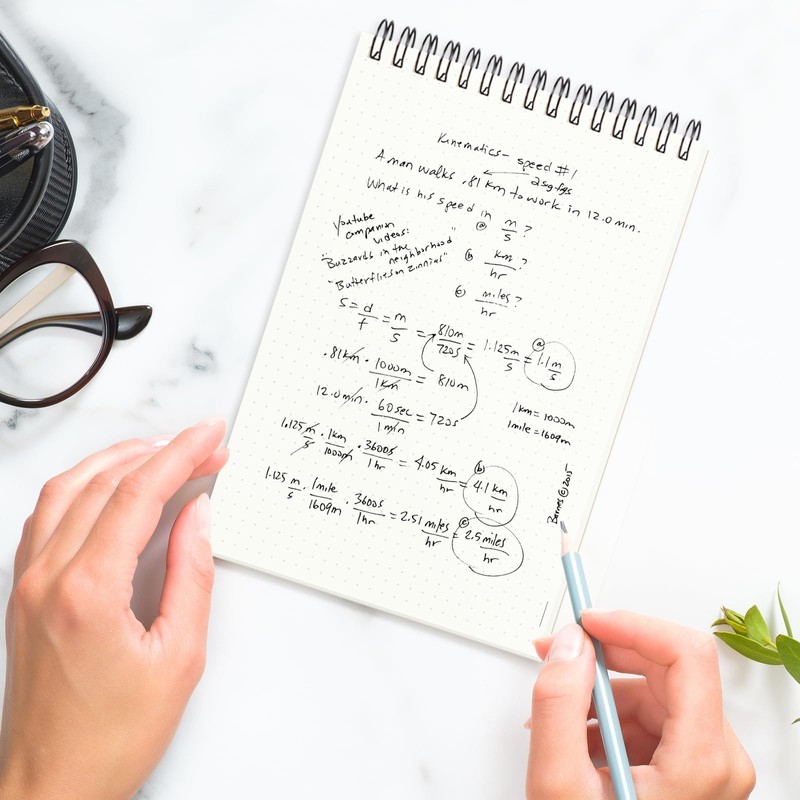 Kinematics - speed #1
A man walks .81 km to work in 12.0 min.
2 sg. figs
What is his speed in ⓐ m/s ?
ⓑ km/hr ?
ⓒ miles/hr ?
Youtube
companion
videos:
"Buzzards in the
neighborhood"
"Butterflies on Zinnias"
S = d/t = m/s = 810m/720s = 1.125 m/s = ⓐ 1.1 m/s
.81km · 1000m/1km = 810m
12.0min · 60sec/1min = 720s
1km = 1000m
1mile = 1609m
1.125 m/s · 1km/1000m · 3600s/1hr = 4.05 km/hr = ⓑ 4.1 km/hr
1.125 m/s · 1mile/1609m · 3600s/1hr = 2.51 miles/hr = ⓒ 2.5 miles/hr
Barnes © 2015